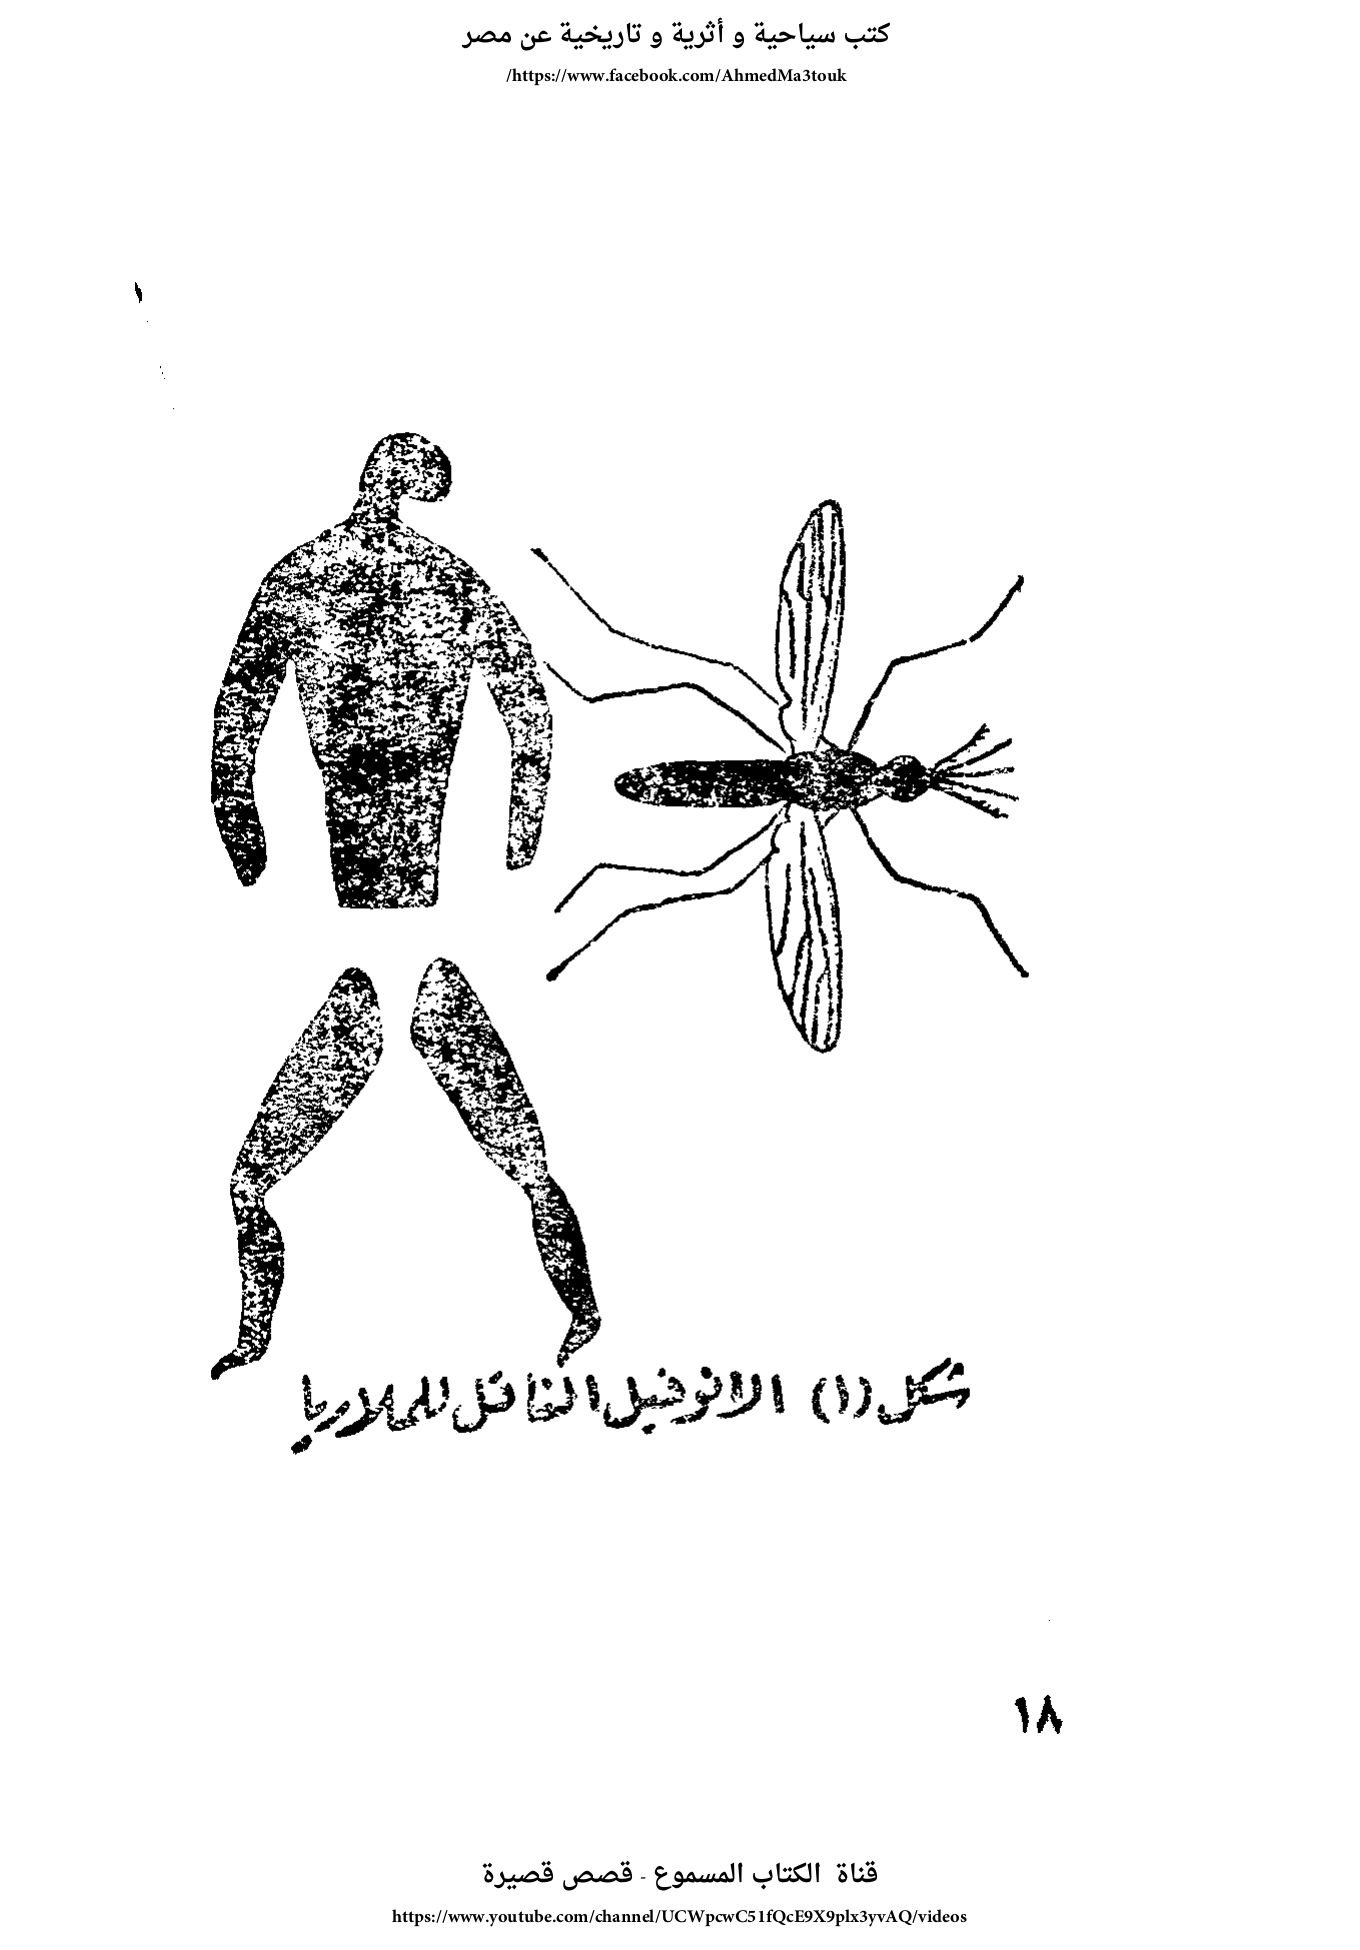 كتب سياحية و أثرية و تاريخية عن مصر
https://www.facebook.com/AhmedMa3touk/
شكل (١) الانوفيل الناقل للملاريا
١٨
قناة الكتاب المسموع - قصص قصيرة
https://www.youtube.com/channel/UCWpcwC51fQcE9X9plx3yvAQ/videos